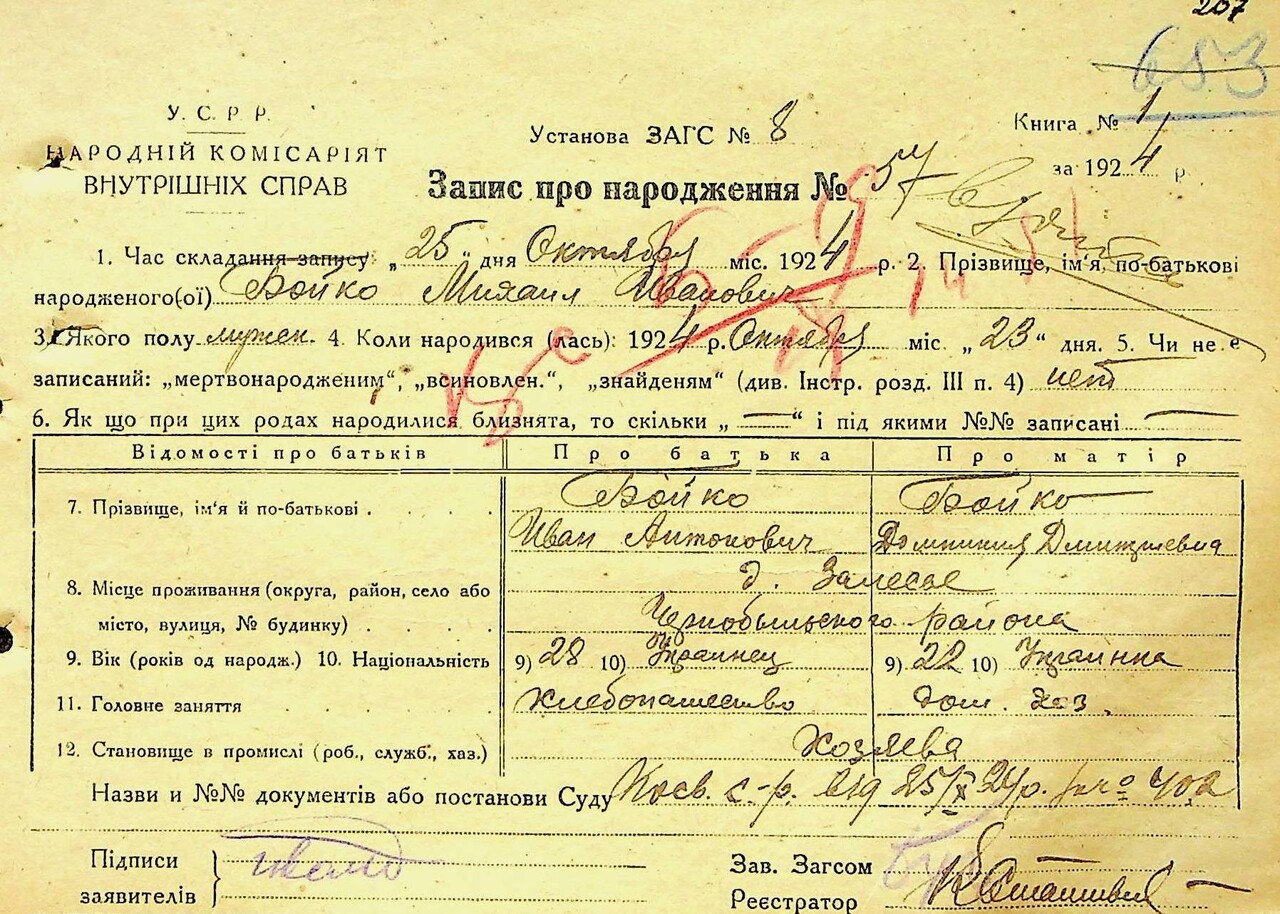 207
683
У. С. Р. Р.
НАРОДНІЙ КОМІСАРІЯТ
ВНУТРІШНІХ СПРАВ
Установа ЗАГС № 8
Книга № 1
за 1924 р
Запис про народження № 57
1. Час складання запису: „25“ дня Октября міс. 1924 р. 2. Прізвище, ім'я, по-батькові
народженого(ої) Бойко Михаил Иванович
3. Якого полу мужск. 4. Коли народився (лась): 1924 р. Октября міс. „23“ дня. 5. Чи не є
записаний: „мертвонародженим“, „всиновлен.“, „знайденям“ (див. Інстр. розд. III п. 4) нет
6. Як що при цих родах народилися близнята, то скільки „—“ і під якими №№ записані —
Відомості про батьків Про батька Про матір
7. Прізвище, ім'я й по-батькові . . . . Бойко Бойко
Иван Антонович Домникия Дмитриевна
8. Місце проживання (округа, район, село або д. Залесье
місто, вулиця, № будинку) . . . . Чернобыльского района
9. Вік (років од народж.) 10. Національність 9) 28 10) Украинец 9) 22 10) Украинка
11. Головне заняття . . . . . Хлебопашество дом. хоз.
12. Становище в промислі (роб., служб., хаз.) Хозяева
Назви и №№ документів або постанови Суду с-р. від 25/X 24р. за № 402
Підписи
заявителів
Зав. Загсом
Реєстратор